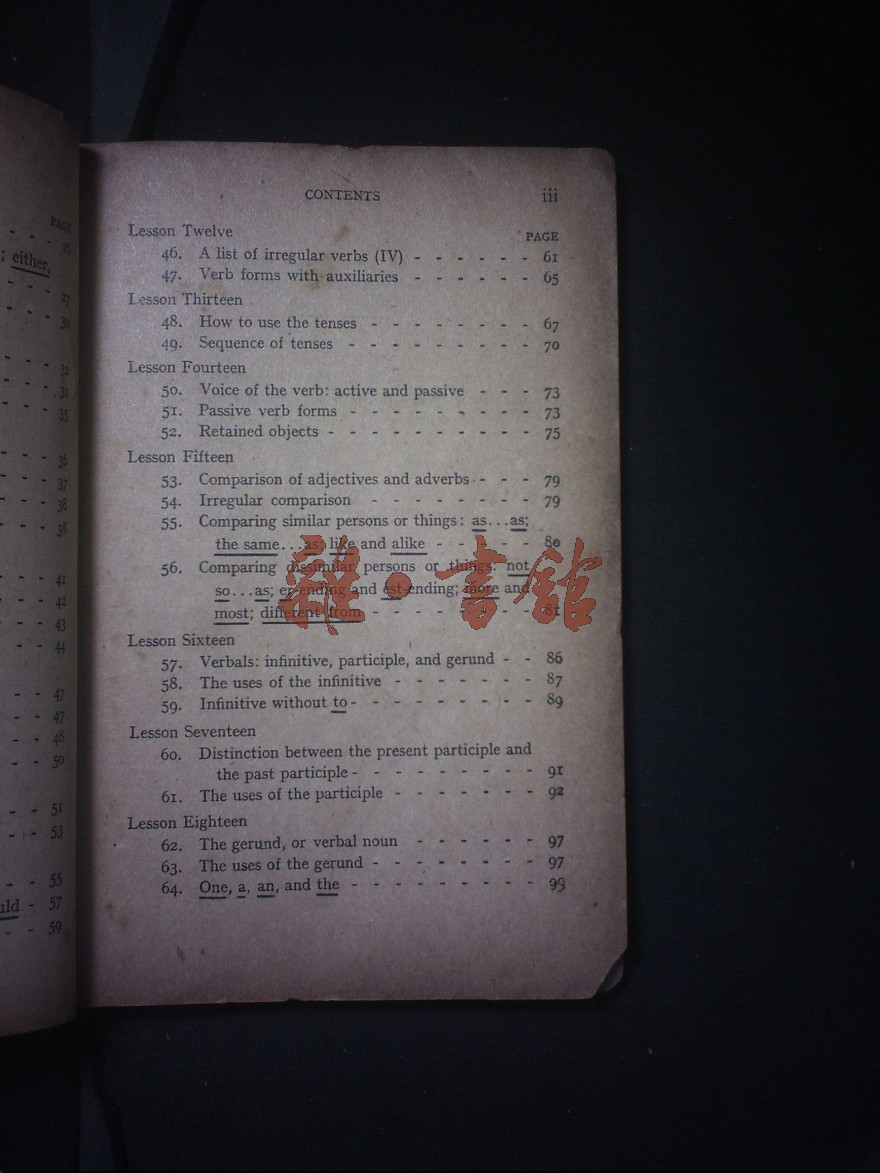 PAGE
26
; either,
27
30
32
32
35
36
37
38
38
41
42
43
44
47
47
48
50
51
53
55
uld - 57
59
CONTENTS iii
Lesson Twelve
PAGE
46. A list of irregular verbs (IV) - - - - - - 61
47. Verb forms with auxiliaries - - - - - - 65
Lesson Thirteen
48. How to use the tenses - - - - - - - - 67
49. Sequence of tenses - - - - - - - - - 70
Lesson Fourteen
50. Voice of the verb: active and passive - - - 73
51. Passive verb forms - - - - - - - - - 73
52. Retained objects - - - - - - - - - - 75
Lesson Fifteen
53. Comparison of adjectives and adverbs - - - 79
54. Irregular comparison - - - - - - - - 79
55. Comparing similar persons or things: as...as;
the same...as; like and alike - - - - - 80
56. Comparing dissimilar persons or things: not
so...as; er-ending and est-ending; more and
most; different from - - - - - - - - 81
雜·書館
Lesson Sixteen
57. Verbals: infinitive, participle, and gerund - - 86
58. The uses of the infinitive - - - - - - - 87
59. Infinitive without to - - - - - - - - - 89
Lesson Seventeen
60. Distinction between the present participle and
the past participle - - - - - - - - - 91
61. The uses of the participle - - - - - - - 92
Lesson Eighteen
62. The gerund, or verbal noun - - - - - - 97
63. The uses of the gerund - - - - - - - - 97
64. One, a, an, and the - - - - - - - - - 99